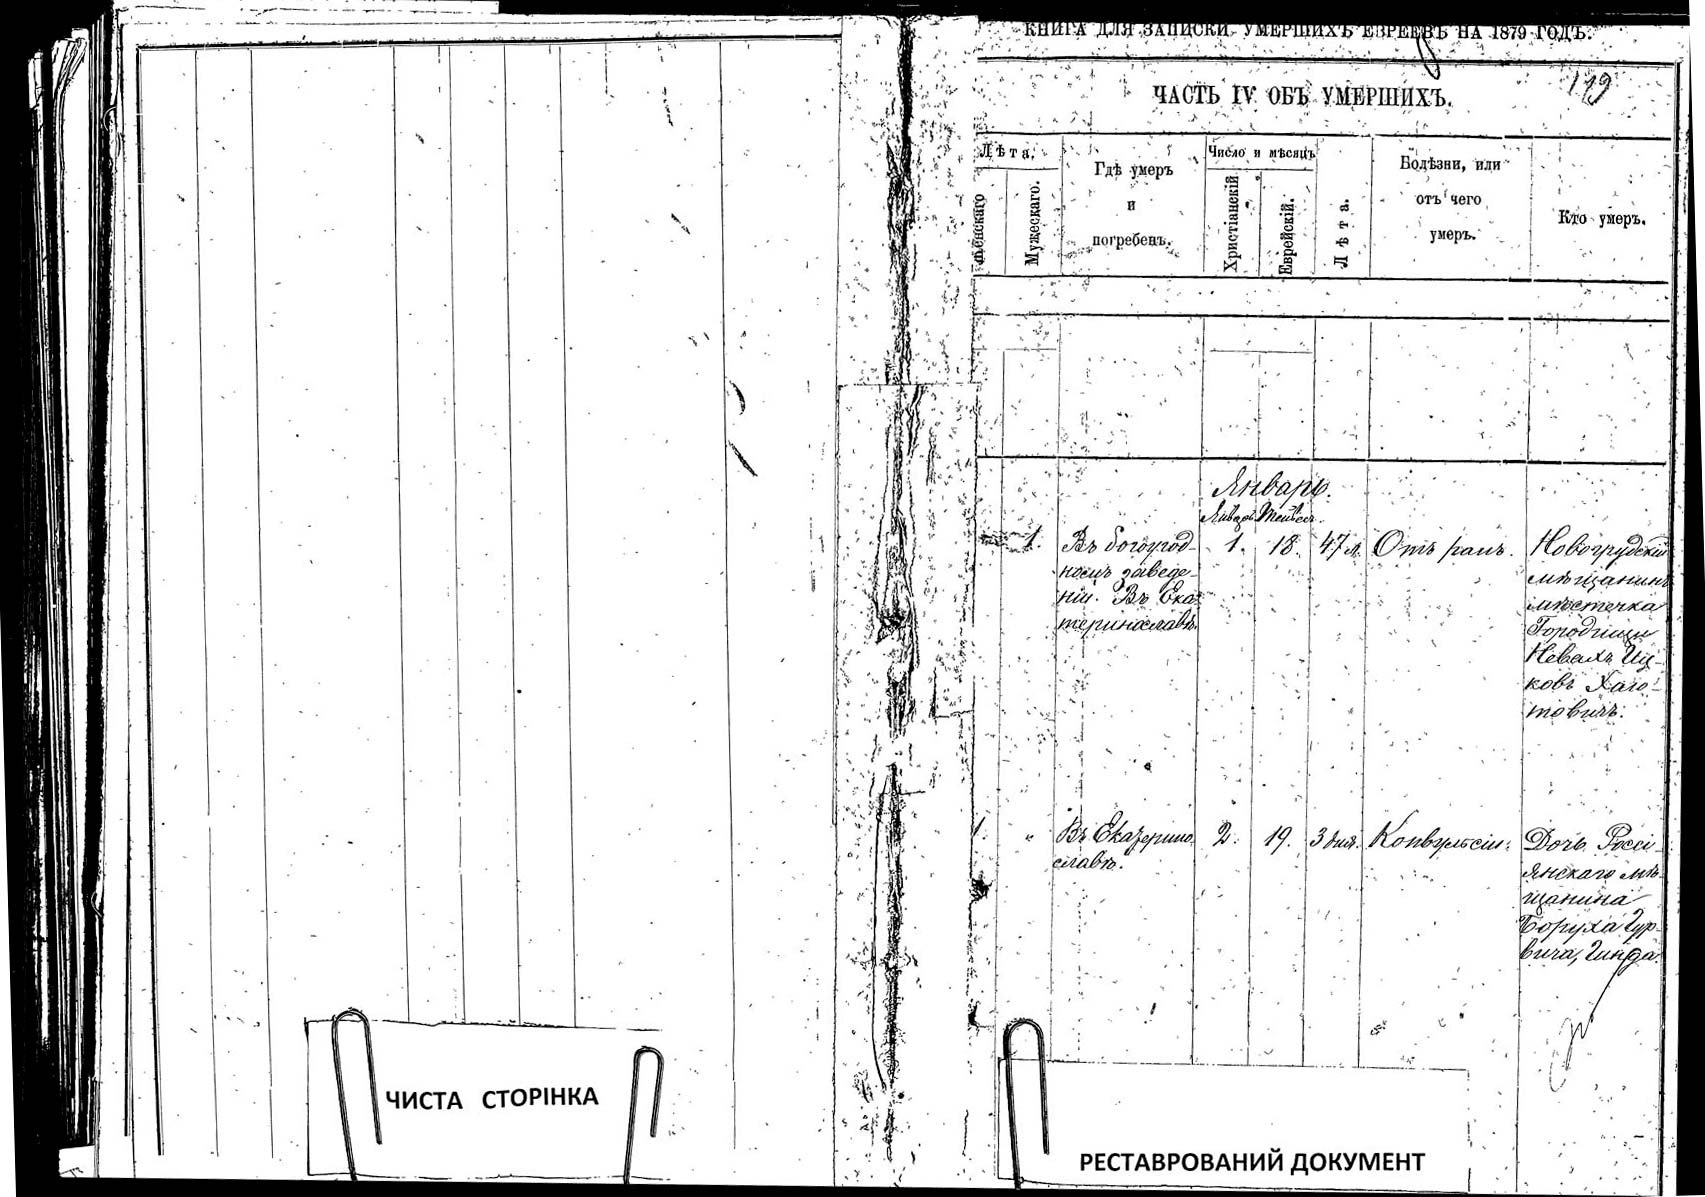 КНИГА ДЛЯ ЗАПИСКИ УМЕРШИХЪ ЕВРЕЕВЪ НА 1879 ГОДЪ.
119
ЧАСТЬ IV ОБЪ УМЕРШИХЪ.
Лѣта.
Женскаго
Мужескаго.
Гдѣ умеръ
и
погребенъ.
Число и мѣсяцъ
Христіанскій
Еврейскій.
Лѣта.
Болѣзни, или
отъ чего
умеръ.
Кто умеръ.
Январь.
1.
Въ богоугод-
номъ заведе-
ніи. Въ Ека-
теринославѣ.
1.
18.
47 л.
Отъ ранъ.
Новогрудскій
мѣщанинъ
мѣстечка
Городищи
Невахъ Иц-
ковъ
1.
"
Въ Екатерино-
славѣ.
2.
19.
3 дня.
Конвульсіи.
Дочь Россі-
янскаго мѣ-
щанина
Боруха Гур-
вича, Гинда.
ЧИСТА СТОРІНКА
РЕСТАВРОВАНИЙ ДОКУМЕНТ